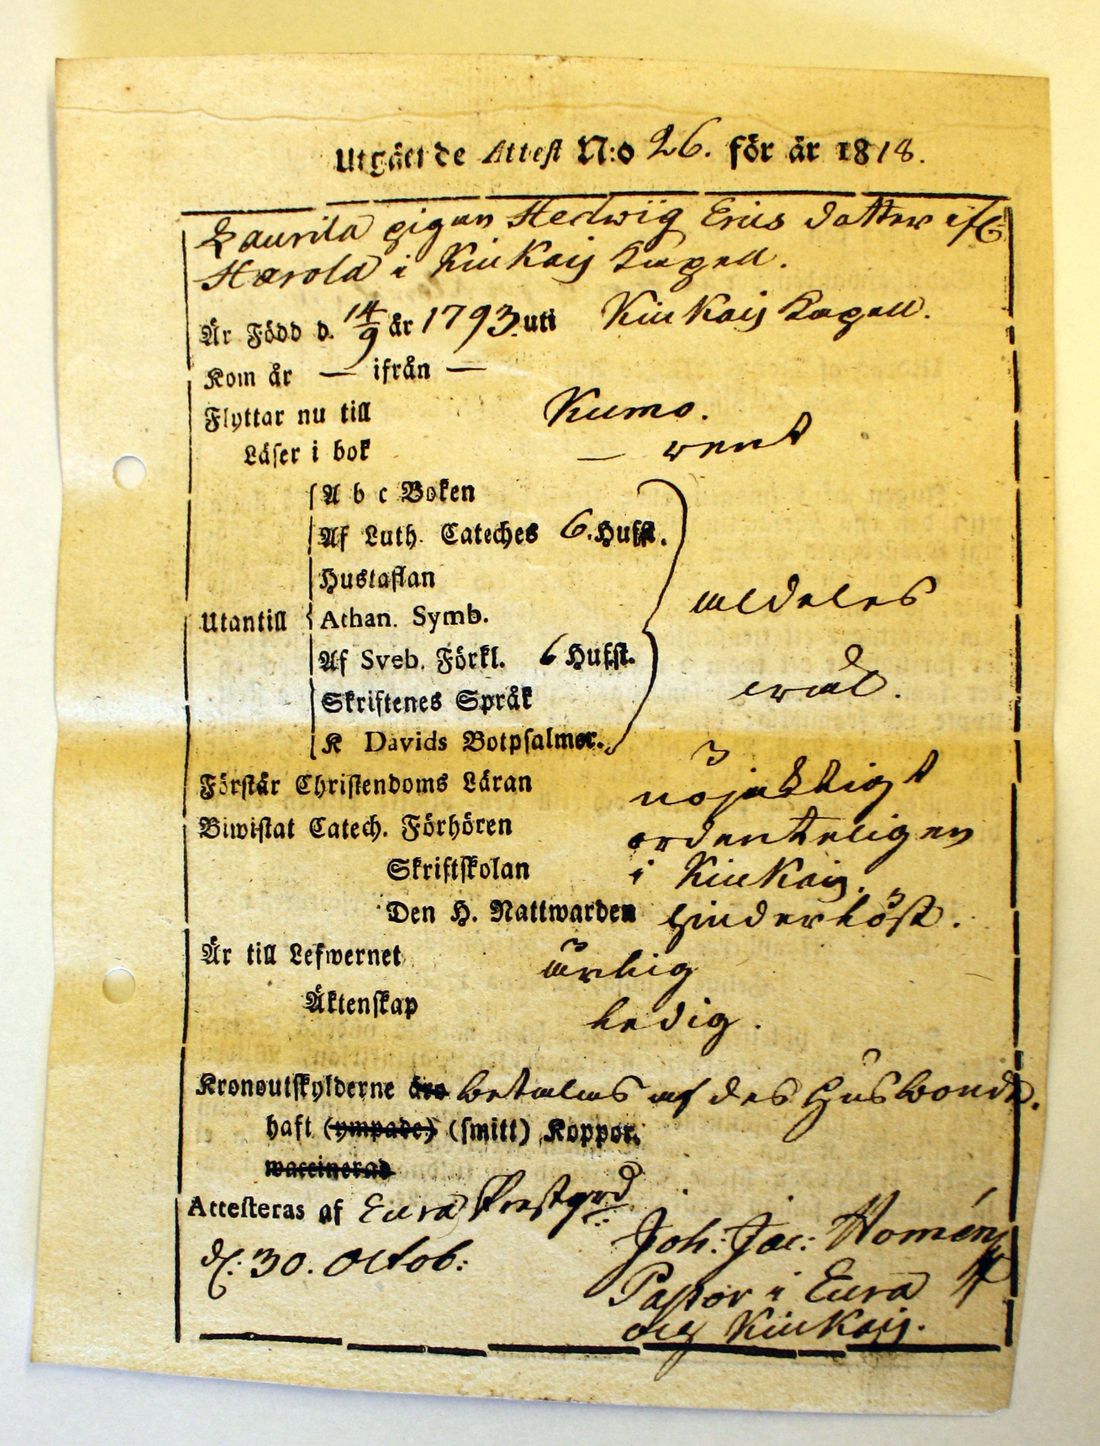 Utgåel de Attest N:o 26. för år 1818.
Laurila pigan Hedwiig Erics dotter ifr:
Harola i Kiu Kais Capell.
Är Född d. 14/9 år 1793. uti Kiu Kais Capell.
Kom år — ifrån —
Flyttar nu till Kumo.
Läser i bok — rent
A b c Boken
Af Luth. Cateches 6. Hufst.
Hustaflan
Utantill Athan. Symb. aldeles
Af Sveb. Förkl. 6 Hufst.
Skriftenes Språk
K Davids Botpsalmer.
Förstår Christendoms Läran nöjaktigt
Biwistat Catech. Förhören ordenteligen
Skriftskolan i Kiu Kais.
Den H. Nattwarden hinderlöst.
Är till Lefwernet ärlig
Äktenskap ledig.
Kronoutskylderne äro betalas af des Husbonde.
haft (ympade) (smitt) Koppor.
waccinerad
Attesteras af Eura Prestgrd
d: 30. Octob: Joh: Jac: Homén
Pastor i Eura
och Kiu Kais.